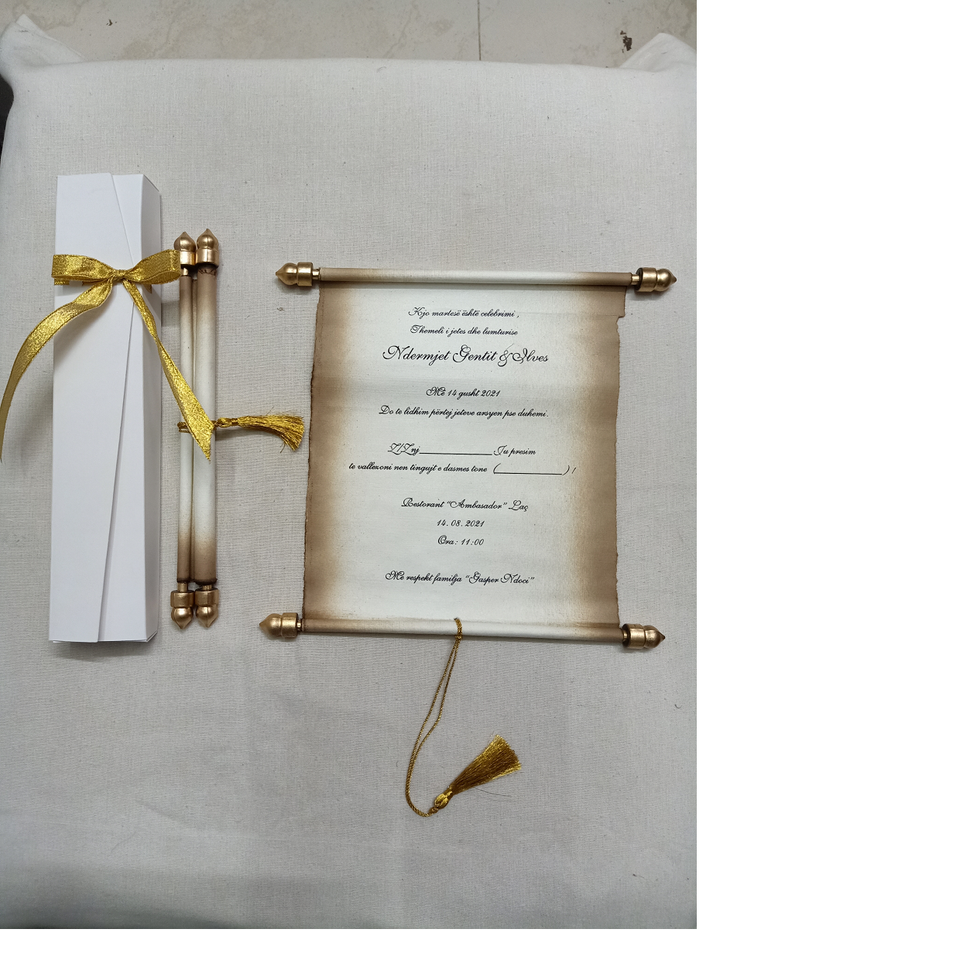 Kjo martesë është celebrimi ,
Themeli i jetes dhe lumturise
Ndermjet Gentit & Ilves
Më 14 gusht 2021
Do te lidhim përtej jeteve arsyen pse duhemi.
Z/Znj______________ Ju presim
te vallëzoni nen tingujt e dasmes tone (____________) !
Restorant "Ambasador" Laç
14. 08. 2021
Ora: 11:00
Me respekt familja "Gasper Ndoci"